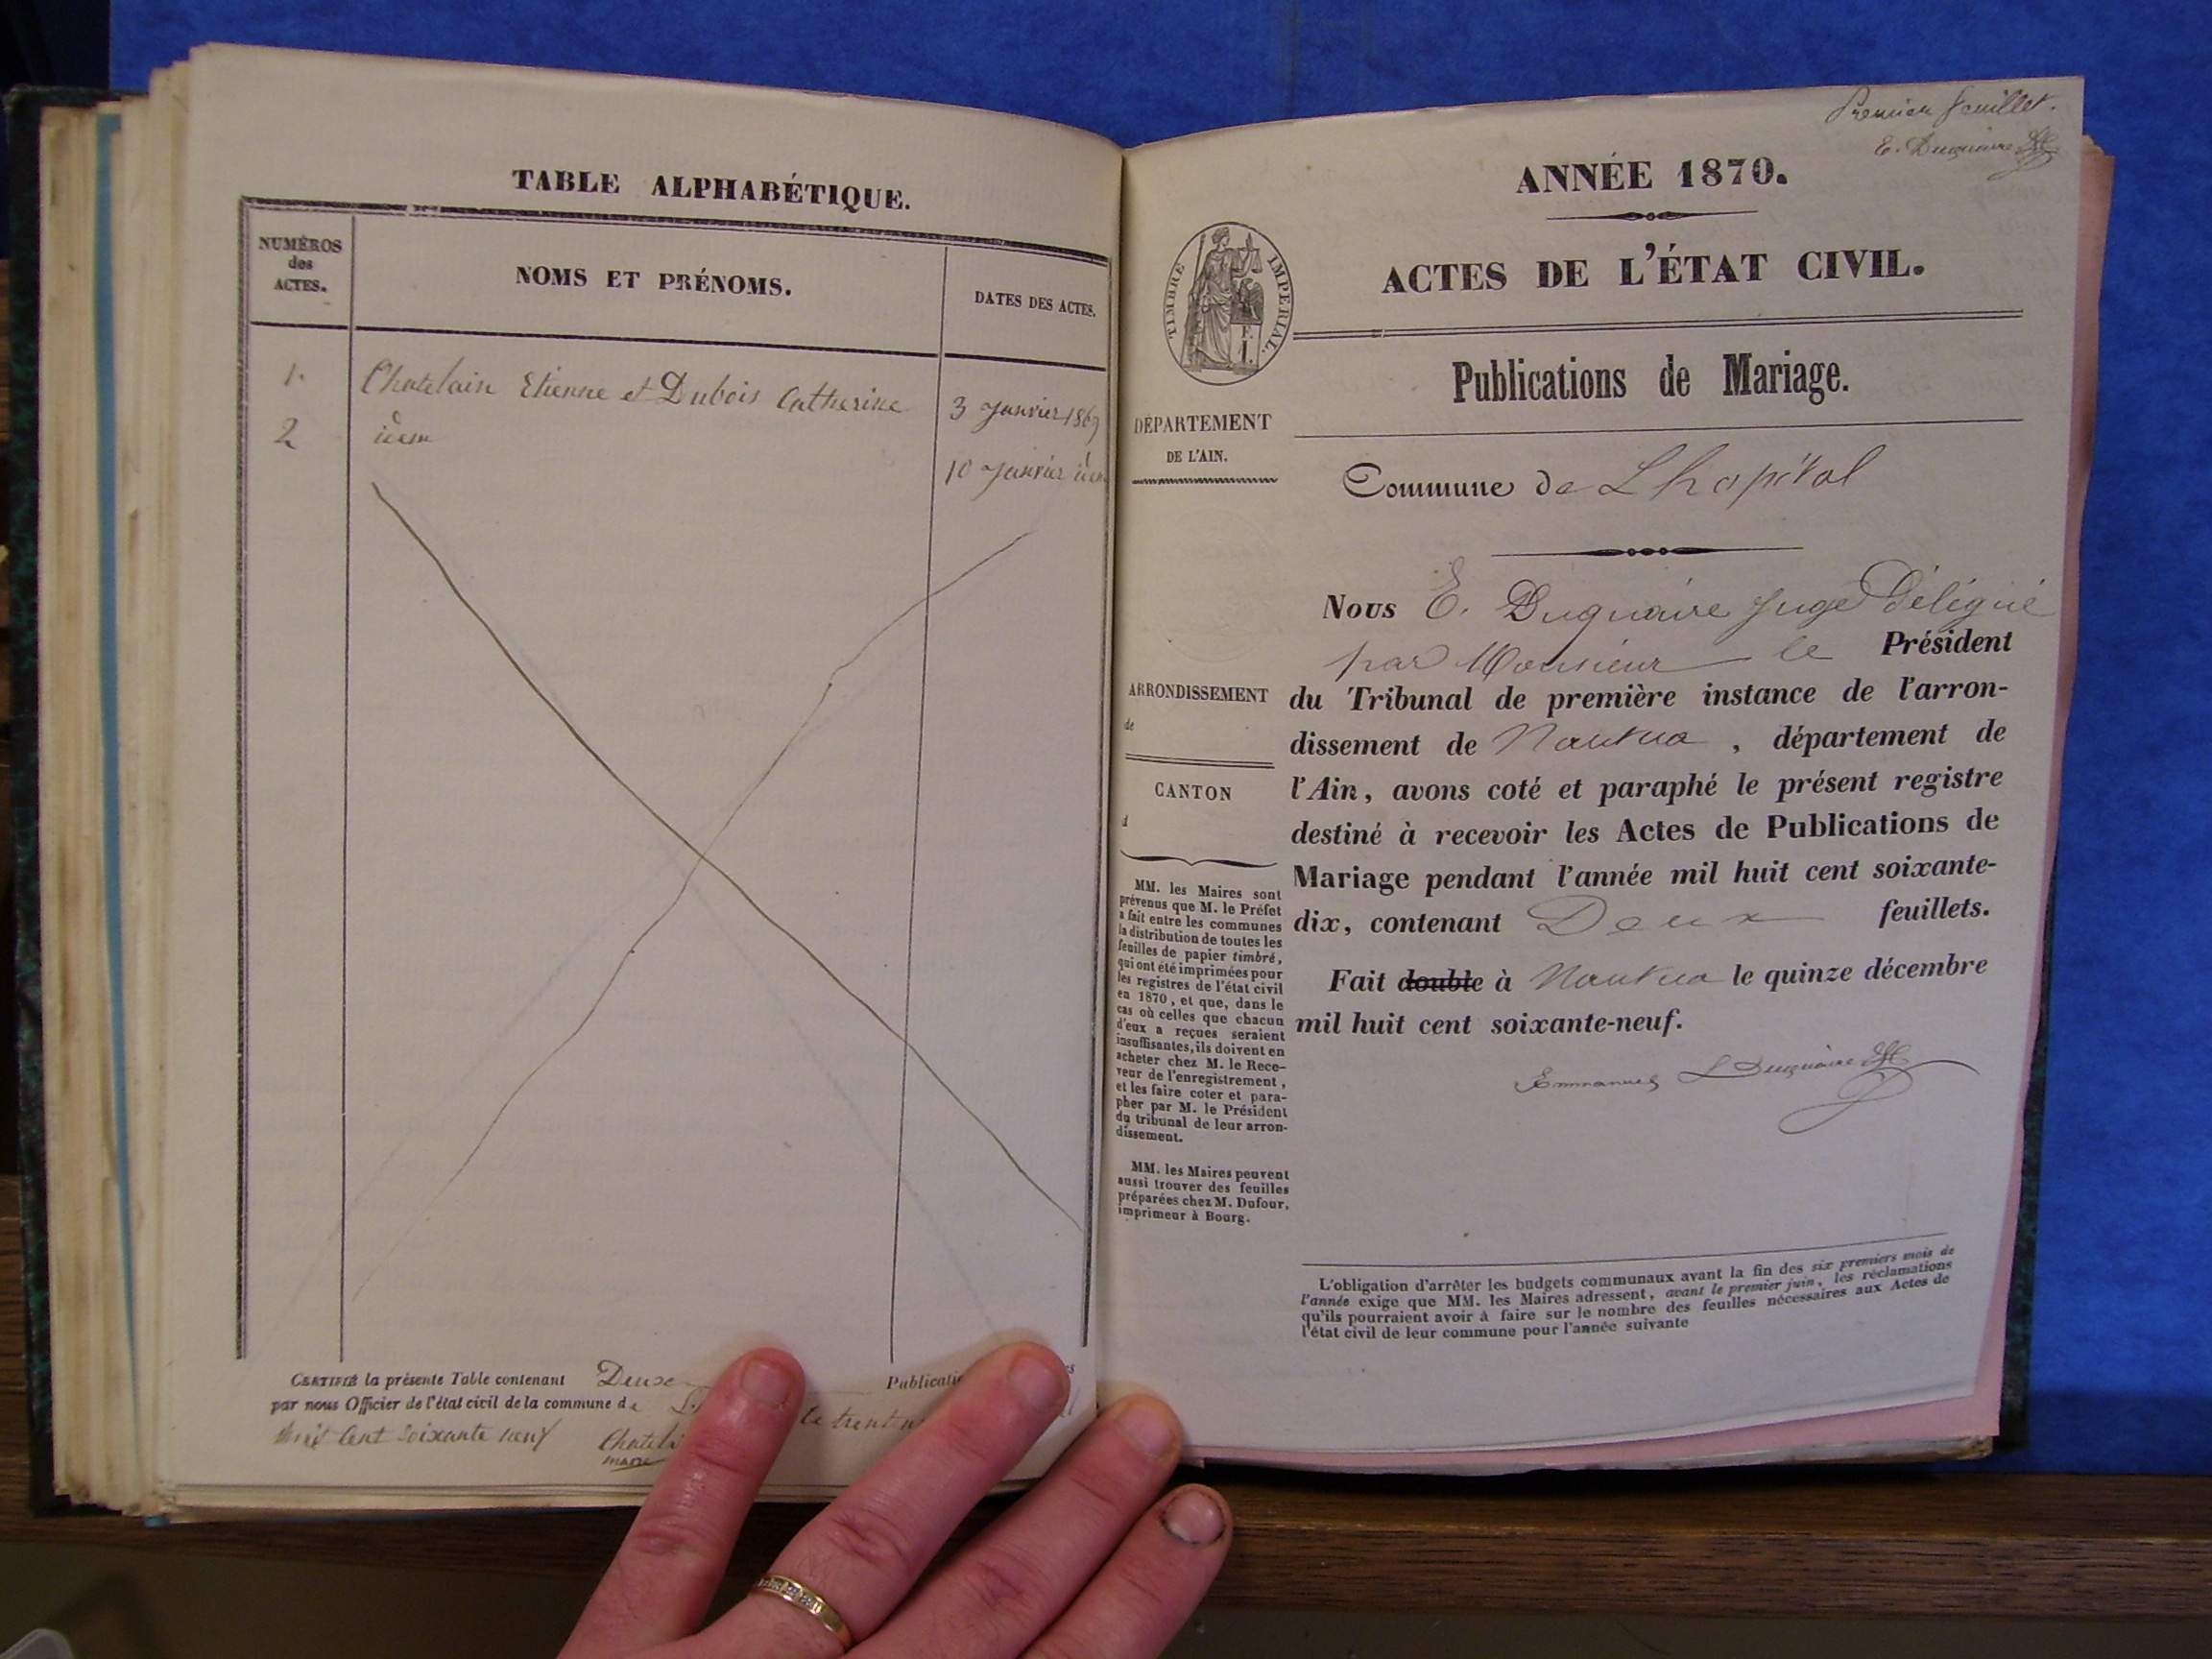 TABLE ALPHABÉTIQUE.
NUMÉROS
des
ACTES.
NOMS ET PRÉNOMS.
DATES DES ACTES.
1. Chatelain Etienne et Dubois Catherine 3 Janvier 1869
2 idem 10 Janvier idem
CERTIFIÉ la présente Table contenant Deux Publicati
par nous Officier de l'état civil de la commune de L le trent
huit cent soixante neuf Chatel
maire
Premier feuillet.
E. Duquaire
ANNÉE 1870.
ACTES DE L'ÉTAT CIVIL.
TIMBRE IMPERIAL.
Publications de Mariage.
DÉPARTEMENT
DE L'AIN.
Commune de Lhopital
Nous E. Duquaire Juge Délégué
par Monsieur le Président
du Tribunal de première instance de l'arron-
dissement de Nantua, département de
l'Ain, avons coté et paraphé le présent registre
destiné à recevoir les Actes de Publications de
Mariage pendant l'année mil huit cent soixante-
dix, contenant Deux feuillets.
Fait double à Nantua le quinze décembre
mil huit cent soixante-neuf.
Emmanuel Duquaire
ARRONDISSEMENT
de
CANTON
d
MM. les Maires sont
prévenus que M. le Préfet
a fait entre les communes
la distribution de toutes les
feuilles de papier timbré,
qui ont été imprimées pour
les registres de l'état civil
en 1870, et que, dans le
cas où celles que chacun
d'eux a reçues seraient
insuffisantes, ils doivent en
acheter chez M. le Rece-
veur de l'enregistrement,
et les faire coter et para-
pher par M. le Président
du tribunal de leur arron-
dissement.
MM. les Maires peuvent
aussi trouver des feuilles
préparées chez M. Dufour,
imprimeur à Bourg.
L'obligation d'arrêter les budgets communaux avant la fin des six premiers mois de
l'année exige que MM. les Maires adressent, avant le premier juin, les réclamations
qu'ils pourraient avoir à faire sur le nombre des feuilles nécessaires aux Actes de
l'état civil de leur commune pour l'année suivante